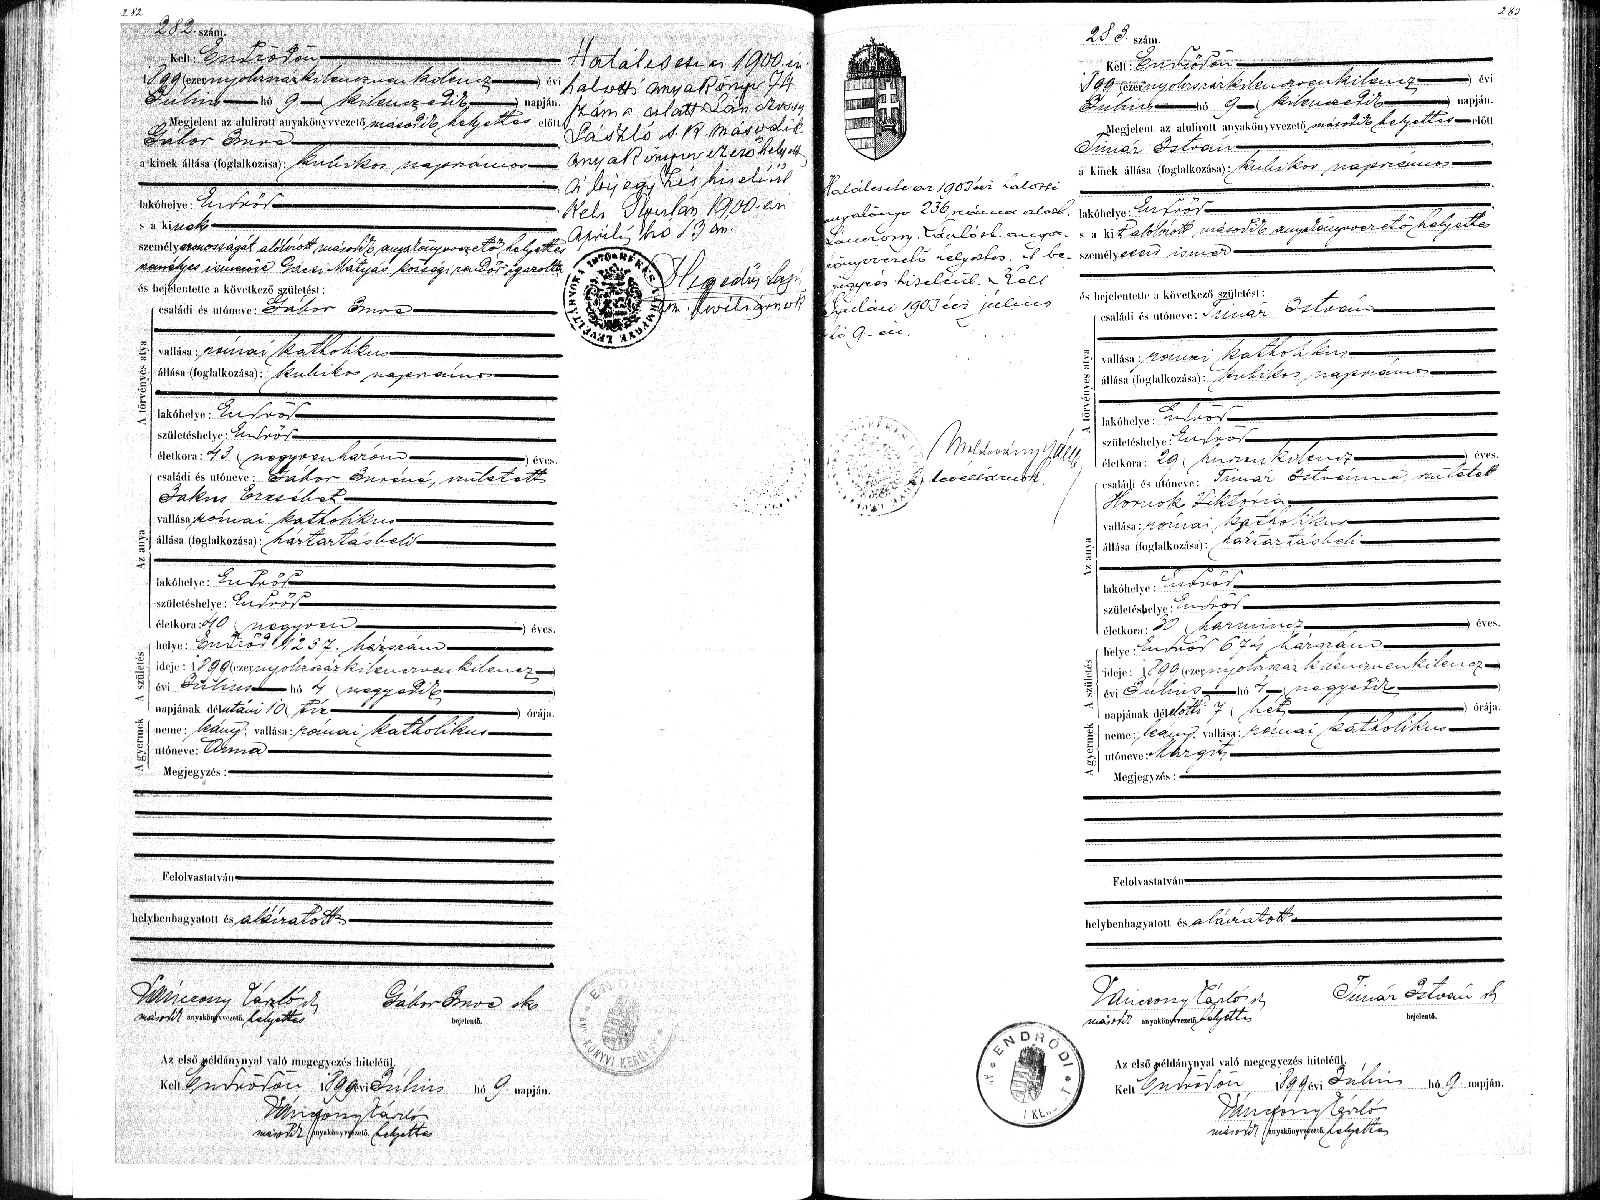 282
282. szám.
Kelt: Endrődön
1899 (ezernyolczszázkilenczvenkilencz) évi
Julius hó 9 (kilenczedik) napján.
Megjelent az alulirott anyakönyvvezető második helyettes előtt
Gábor Imre
a kinek állása (foglalkozása): kubikos napszámos
lakóhelye: Endrőd
s a kinek
személyazonosságát alólirott második anyakönyvvezető helyettes
személyes ismerőse Mátyás községi igazolta
és bejelentette a következő születést:
A törvényes atya
családi és utóneve: Gábor Imre
vallása: római katholikus
állása (foglalkozása): kubikos napszámos
lakóhelye: Endrőd
születéshelye: Endrőd
életkora: 43 (negyvenhárom) éves.
Az anya
családi és utóneve: Gábor Imréné, született
Jakus Erzsébet
vallása: római katholikus
állása (foglalkozása): háztartásbeli
lakóhelye: Endrőd
születéshelye: Endrőd
életkora: 40 (negyven) éves.
A születés
helye: Endrőd 1237. házszám
ideje: 1899 (ezernyolczszázkilenczvenkilencz)
évi Julius hó 4 (negyedik)
napjának délutáni 10 (tíz) órája.
A gyermek
neme: leány; vallása: római katholikus
utóneve: Anna
Megjegyzés:
Felolvastatván
helybenhagyatott és aláiratott
Vánczony László sk
Gábor Imre sk
második anyakönyvvezető. helyettes
bejelentő.
Az első példánynyal való megegyezés hiteléül.
Kelt Endrődön 1899 évi Július hó 9 napján.
Vánczony László
második anyakönyvvezető. helyettes
Halálesete az 1900. évi
halotti anyakönyv 74
szám alatt Vánczony
László s. k. második
anyakönyvvezető helyett.
A bejegyzés hiteléül
Kelt Gyulán 1900. évi
April hó 13 án.
Hegedűs
BÉKÉSVÁRMEGYE LEVÉLTÁRNOKA 1870
283
283. szám.
Kelt: Endrődön
1899 (ezernyolczszázkilenczvenkilencz) évi
Julius hó 9 (kilenczedik) napján.
Megjelent az alulirott anyakönyvvezető második helyettes előtt
Timár István
a kinek állása (foglalkozása): kubikos napszámos
lakóhelye: Endrőd
s a kit alólirott második anyakönyvvezető helyettes
személyesen ismer
és bejelentette a következő születést:
A törvényes atya
családi és utóneve: Timár István
vallása: római katholikus
állása (foglalkozása): kubikos napszámos
lakóhelye: Endrőd
születéshelye: Endrőd
életkora: 29 (huszonkilencz) éves.
Az anya
családi és utóneve: Timár Istvánné, született
Hornok Viktória
vallása: római katholikus
állása (foglalkozása): háztartásbeli
lakóhelye: Endrőd
születéshelye: Endrőd
életkora: 30 (harmincz) éves.
A születés
helye: Endrőd házszám
ideje: 1899 (ezernyolczszázkilenczvenkilencz)
évi Julius hó 4 (negyedik)
napjának délelőtti 7 (hét) órája.
A gyermek
neme: leány; vallása: római katholikus
utóneve: Margit
Megjegyzés:
Felolvastatván
helybenhagyatott és aláiratott
Vánczony László sk
Timár István sk
második anyakönyvvezető. helyettes
bejelentő.
Az első példánynyal való megegyezés hiteléül.
Kelt Endrődön 1899 évi Július hó 9 napján.
Vánczony László
második anyakönyvvezető. helyettes
Halálesete az 1903 évi halotti
anyakönyv 236 száma alatt.
Vánczony László anya-
könyvvezető helyettes. A be-
jegyzés hiteléül. Kelt
Gyulán 1903 évi július
hó 9-én.
levéltárnok
ENDRŐDI